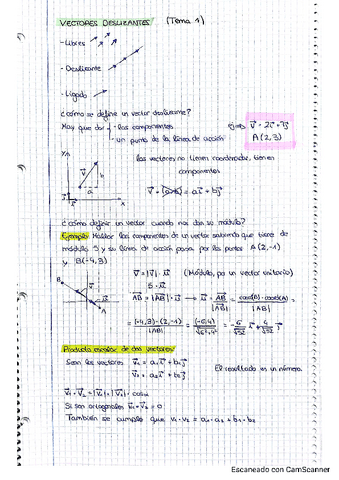 VECTORES DESLIZANTES (Tema 1)
- Libres
- Deslizante
- Ligado
¿Cómo se define un vector deslizante?
Hay que dar - las componentes
- un punto de la línea de acción
A(2,3)
los vectores no tienen coordenadas, tienen
componentes
Y
b
a
X
¿Cómo definir un vector cuando nos dan su módulo?
Ejemplo: Hallar las componentes de un vector sabiendo que tiene de
módulo 5 y su línea de acción pasa por los puntos A(2,-1)
y B(-4,3)
B
A
v = |v| · u (Módulo por un vector unitario)
5 · u
AB = |AB| · u → u = AB / |AB| = coord(B) - coord(A) / |AB|
= (-4,3) - (2,-1) / |AB| = (-6,4) / √6²+4² = -6/√52 i + 4/√52 j
Producto escalar de dos vectores:
Sean los vectores v₁ = a₁ i + b₁ j
v₂ = a₂ i + b₂ j
El resultado es un número
v₁ · v₂ = |v₁| · |v₂| · cos α
Si son ortogonales v₁ · v₂ = 0
También se cumple que v₁ · v₂ = a₁ · a₂ + b₁ · b₂
Escaneado con CamScanner